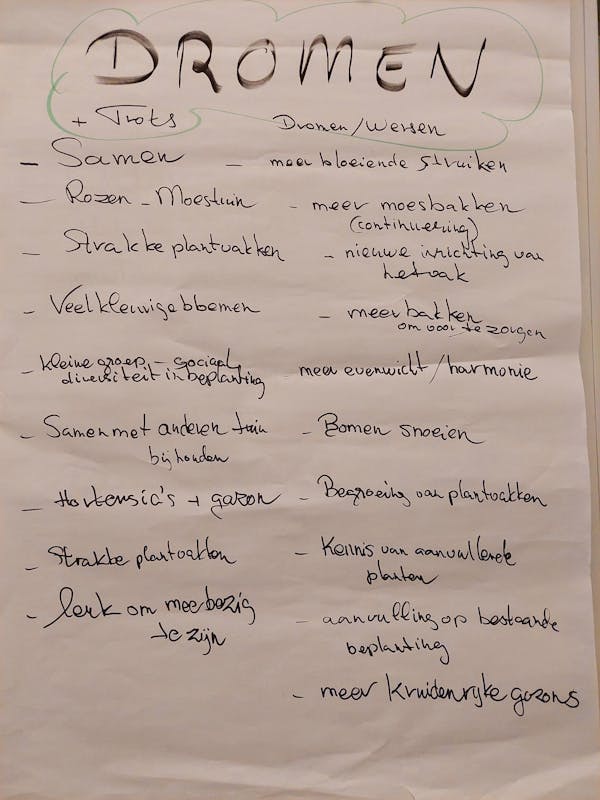 DROMEN
+ Trots
Dromen/wensen
- Samen
- Rozen - Moestuin
- Strakke plantvakken
- Veelkleurige bloemen
- kleine groep - sociaal
diversiteit in beplanting
- Samen met anderen tuin
bijhouden
- Hortensia's + gazon
- Strakke plantvakken
- leuk om mee bezig
te zijn
- meer bloeiende struiken
- meer moesbakken
(continuering)
- nieuwe inrichting van
het vak
- meer bakken
om voor te zorgen
- meer evenwicht/harmonie
- Bomen snoeien
- Begroeing van plantvakken
- Kennis van aanvullende
planten
- aanvulling op bestaande
beplanting
- meer kruidenrijke gazons